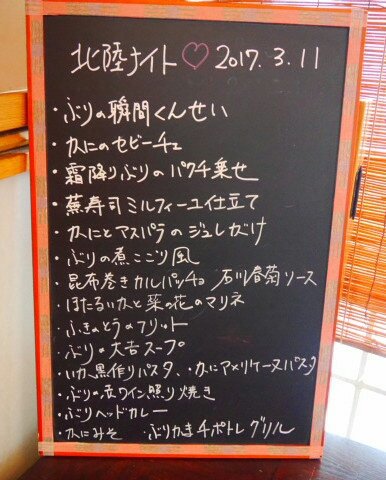 北陸ナイト♡2017.3.11
・ぶりの瞬間くんせい
・かにのセビーチェ
・霜降りぶりのパクチ乗せ
・蕪寿司ミルフィーユ仕立て
・かにとアスパラのジュレがけ
・ぶりの煮こごり風
・昆布巻きカルパッチョ 石川春菊ソース
・ほたるいかと菜の花のマリネ
・ふきのとうのフリット
・ぶり大吉スープ
・いか黒作りパスタ、・かにアメリケーヌパスタ
・ぶりの赤ワイン照り焼き
・ぶりヘッドカレー
・かにみそ ・ぶりかまチポトレグリル